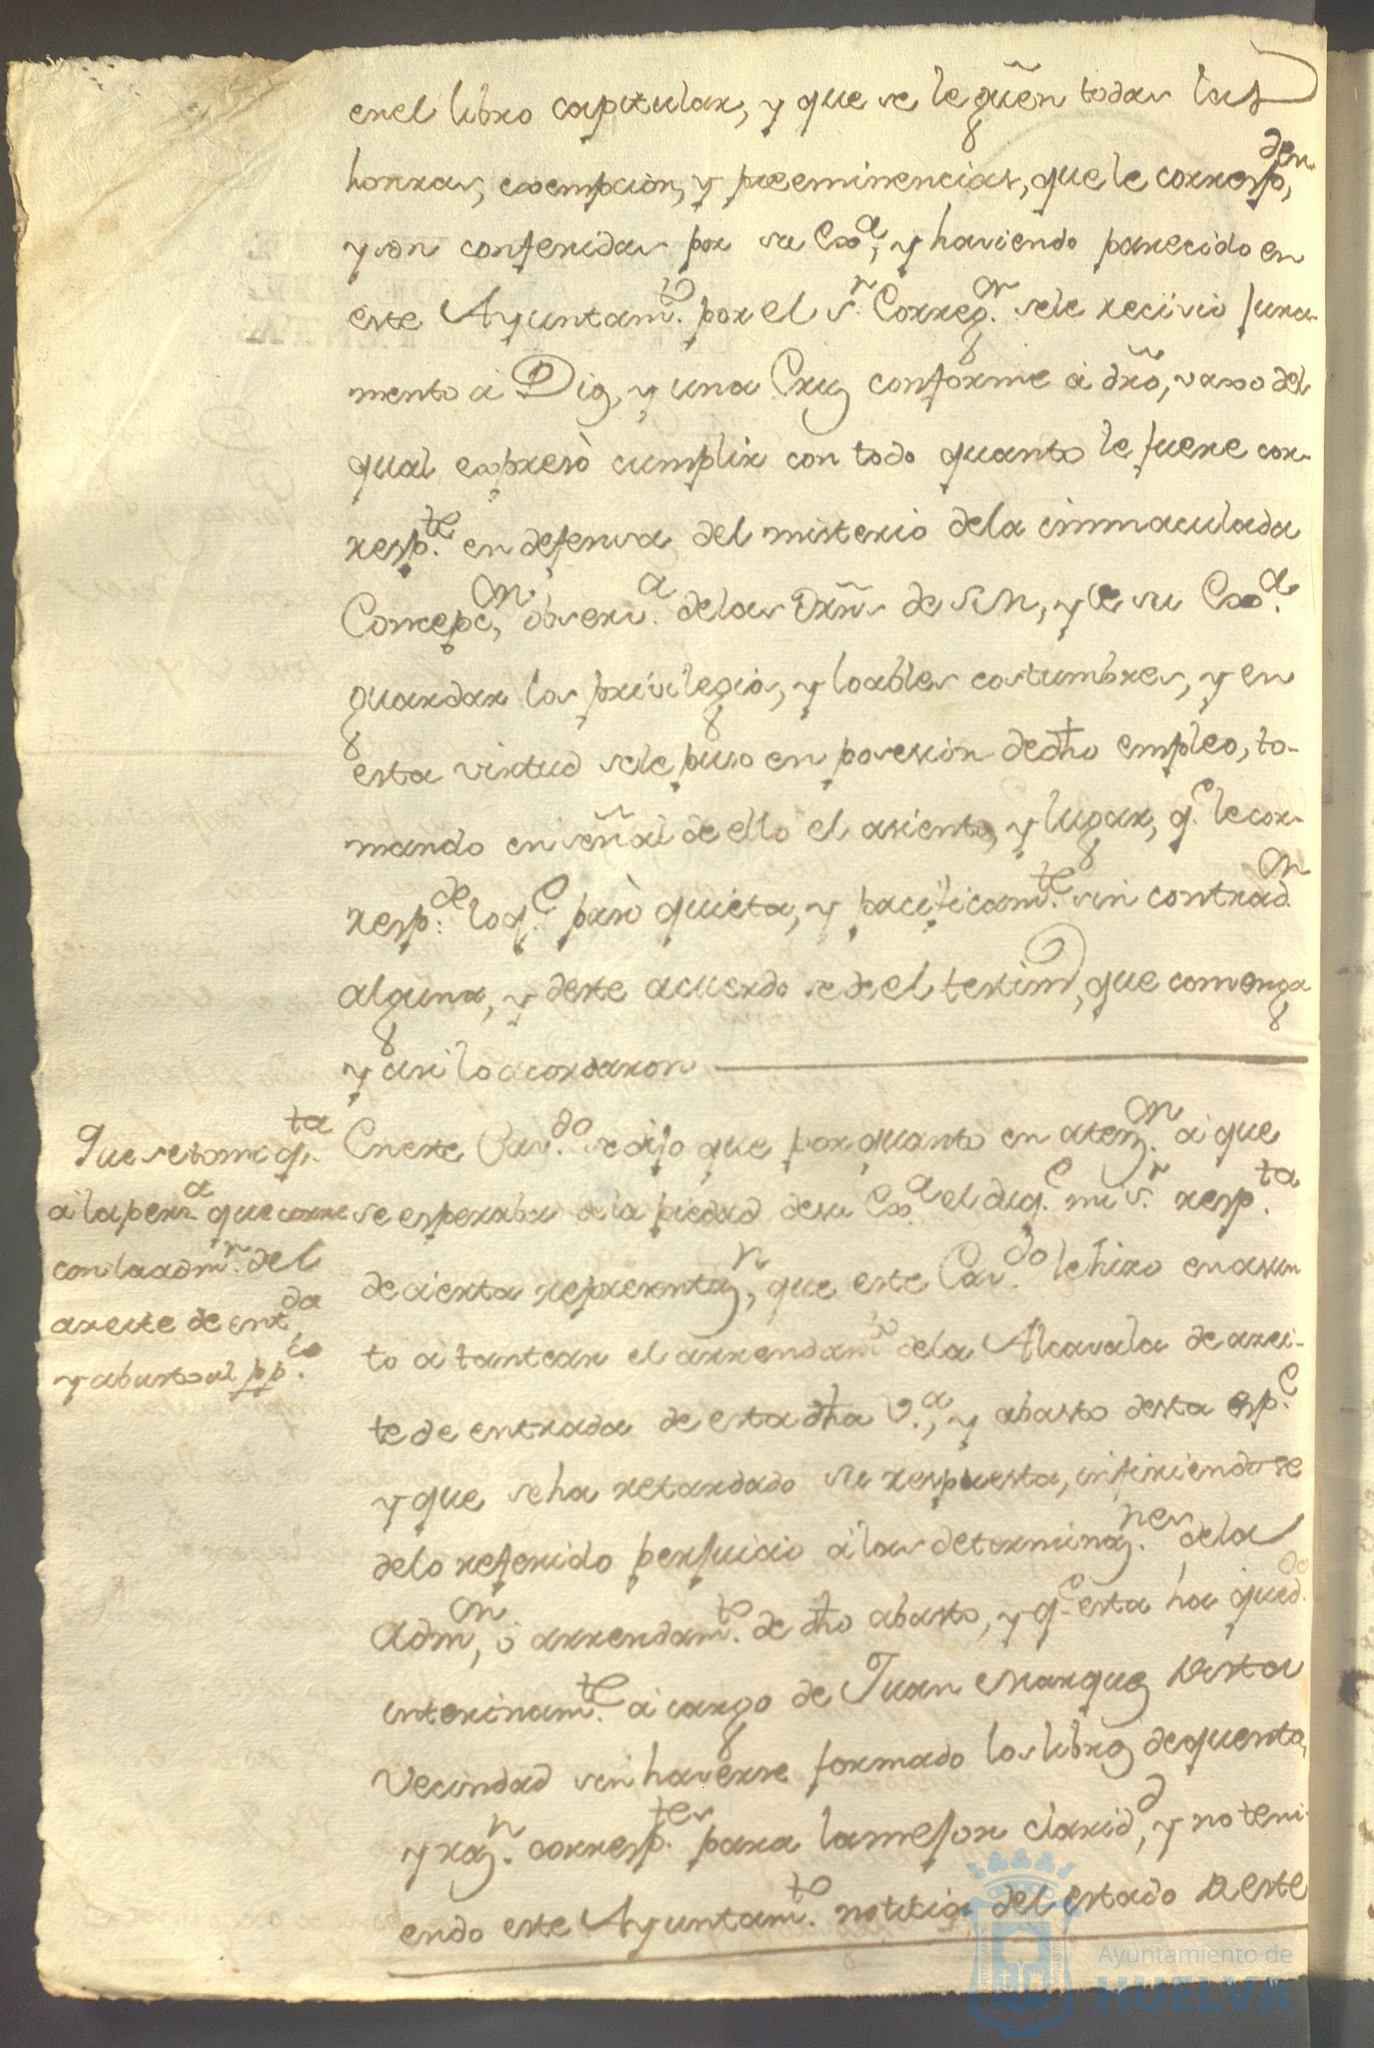 en el libro capitular, y que se le guñ todas las
honras, exempcion, y preeminencias, que le corresp,den
y son conferidas por su Exa, y haviendo parecido en
este Ayuntam.to por el s.r Correg.or sele recivio jura-
mento à Dios, y una Cruz conforme à dró, vaxo del
qual expresò cumplir con todo quanto le fuere cor-
resp.te en defensa del misterio dela immaculada
Concepc,on observ.a delas Ordñs de S M, y de su Exa.
guardar los privilegios, y loables costumbres, y en
esta virtud sele puso en posesion de dho empleo, to-
mando en señal de ello el asiento, y lugar, q.e le cor-
resp.de lo q.e pasò quieta, y pacificam.te sin contrad.on
alguna, y deste acuerdo se de el testim,o que convenga
y asi lo acordaron
Que se tome q,ta
à la pers.a que corre
con la adm.n del
aceite de ent,da
y abasto al pp.co
En este Cav.do se dijo que por quanto en atenz.on à que
se esperaba de la piedad de su Ex.a el duq.e mi s.r resp.ta
de cierta representaz,n que este Cav.do le hizo en asun
to à tantear el arrendam.to dela Alcavala de acei-
te de entrada de esta dha V.a, y abasto desta esp.e
y que se ha retardado su respuesta, infiriendose
delo referido perjuicio à las determinaz.nes dela
Adm,on ò arrendam.to de dho abasto, y q.e esta ha qued.do
interinam.te à cargo de Juan Marquez desta
Vecindad sin haverse formado los libros de quenta,
y raz.n corresp.tes para la mejor clarid,d y no teni-
endo este Ayuntam.to noticia del estado de este
Ayuntamiento de
HUELVA